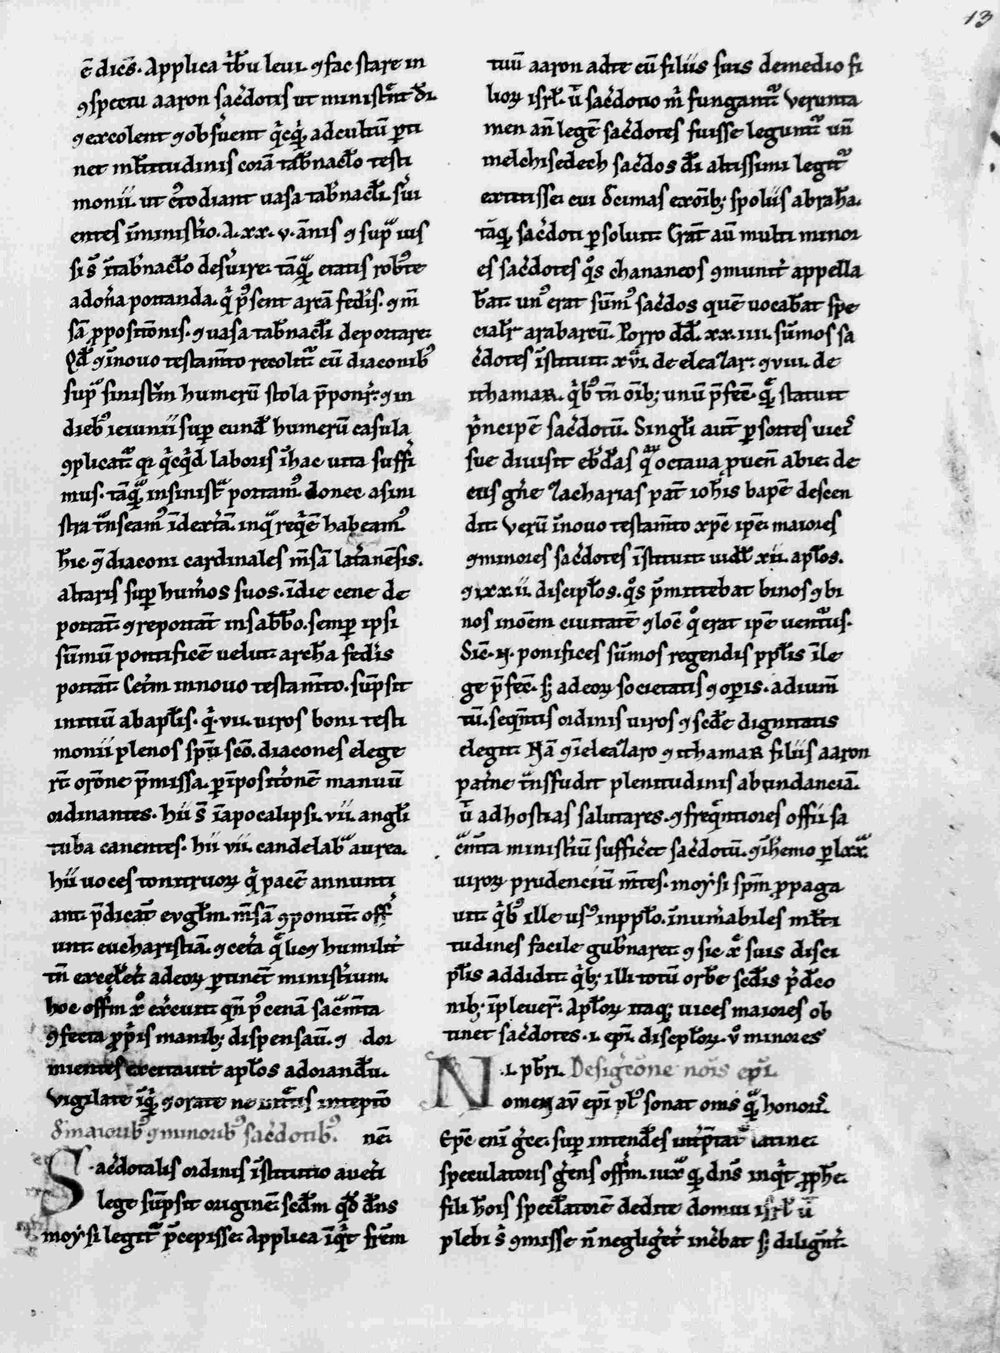 13
ē dicēs. Applica tͥbu leui. ⁊ fac stare in
ꝯspectu aaron sac̄dotis ut ministͬent ei.
⁊ excolent ⁊ obs̄uent qͥcqͥd ad cultū ꝑti
net ml̄titudinis corā tab̄nacl̄o testi
monii. ut c̄todiant uasa tab̄nacl̄i. s̄ui
entes ī ministͥo. A. xx. v. ānis ⁊ sup̄ ius
si s̄ ī tab̄nacl̄o des̄uire. tā qͣ etatis rob̄te
ad on̄a portanda. qͥ p̄sent arcā fedis. ⁊ m̄
sā ꝓpositionis. ⁊ uasa tab̄nacl̄i deportare.
Qd̄ ⁊ ī nouo testam̄to recolit̄ cū diaconibꝰ
sup̄ sinistͬm humerū stola p̄ponit̄. ⁊ in
diebꝰ ieiunii suꝑ eund̄ humerū casula
ꝯplicat̄ qꝛ qͥcqͥd laboris ī hac uita suffi
mus. tāqͣ in sinistͣ portamꝰ. donec a sini
stra tͣnseamꝰ ī dextͣā. in qͣ req̄ē habeamꝰ
hīc ⁊ diaconi cardinales m̄sā latͣanēsis.
altaris suꝑ hum̄os suos. ī die cene de
portāt. ⁊ reportāt in sabb̄o. semꝑ ipsi
sūmū pontificē uelut arch̄a fedis
portāt. Cet̄m in nouo testam̄to. sūpsit
initiū ab apl̄is. qͥ .vii. uiros boni testi
monii plenos sp̄ū sc̄o. diacones elege
rt̄ or̄one p̄missa. ꝑ īpositionē manuū
ordinantes. hii s̄ ī apocalipsi. vii. angl̄i
tuba canentes. hii vii. candelabͣ aurea.
hii uoces tonitruoꝝ qͥ pacē annunti
ant. p̄dicāt ev̄gl̄m. m̄sā ꝯponunt. off̄
unt eucharistiā. ⁊ cet̄a qͣ licꝫ humilit̄
tn̄ excell̄et̄ ad eoꝝ ꝑtinēt ministͥium.
hoc offm̄ xͥ ex̄cuit qn̄ pꝰ cenā sac̄m̄ta
ꝯfecta ꝓpͥis manibꝫ dispensau. ⁊ dor
mientes excitauit apl̄os ad orandū.
Vigilate īqͥt ⁊ orate ne intͥtis in tēpto
ð maioribꝰ ⁊ minoribꝰ sac̄dotibꝰ. nē
Sac̄dotalis ordinis īstitutio a uet̄i
lege sūpsit originē. sed̄m qd̄ dn̄s
moysi legit̄ p̄cepisse. Applica īqͥt fr̄em
tuū aaron ad te cū filiis suis de medio fi
lioꝝ isrl̄. ut̄ sac̄dotio m̄ fungant̄ Verunta
men an̄ legē sac̄dotes fuisse legunt̄ un̄
melchisedech sac̄dos dī altissimi legit̄
extitisse. cui decimas ex oībꝫ spoliis abrahā.
tāqͣ sac̄doti ꝑsoluit. Erāt aū multi minor
es sac̄dotes qͦs chananeos ꝯmunit̄ appella
bāt. unꝰ erat sūmꝰ sac̄dos quē uocabāt spe
cialit̄ arabarcū. Porro dd̄. xx. iiii. sūmos sa
c̄dotes īstituit. xvi. de eleazar. ⁊ viii. de
ithamar. qͥbꝰ tn̄ oībꝫ unū p̄fec̄. qͣ statuit
pͥncipē sac̄dotū. Singl̄i aut̄ ꝑ sortes uicꝭ
sue diuisit ebd̄as qͣ octaua ꝓuen̄ abie. de
cuiꝰ gn̄e Zacharias pat̄ ioh̄is bap̄e descen
dit. Verū ī nouo testam̄to xp̄c ip̄e. maiores
⁊ minores sac̄dotes īstituit. uidl̄. xii. apl̄os.
⁊ lxx ii. discipl̄os. qͦs p̄mittebat binos ⁊ bi
nos in om̄em ciuitatē ⁊ loc̄ qͦ erat ip̄e uent̄us.
Sic̄ .n. pontifices sūmos regendis ppl̄is ī le
ge p̄fec̄. sꝫ ad eoꝝ societatis ⁊ opis. adium̄
tū. seq̄ntis ordinis uiros ⁊ scd̄e dignitatis
elegit. Nā ⁊ ī eleazaro ⁊ ithamar filiis aaron
pat̄ne tͣnsfudit plenitudinis abundanciā.
ut̄ ad hostias salutares. ⁊ freqn̄tiores offīi sa
c̄m̄ta ministͥū suffic̄et sac̄dotū. ⁊ ī h̄emo ꝑ lxxͣ
uiroꝝ prudenciū m̄tes. moysi sp̄m ꝓpaga
uit. qͥbꝰ ille usꝰ in ppl̄o. īnum̄abiles ml̄ti
tudines facile gub̄naret. ⁊ sic xͦ suis disci
pl̄is addidit. qͥbꝫ illi totū orbē scd̄is p̄dco
nibꝫ īpleuer̄. Apl̄oꝝ itaqꝫ uices maiores ob
tinet sac̄dotes .i. ep̄i. discpl̄oꝝ. v̄ minores
.i. pb̄ri. De sigͥcōne nōis ep̄i.
Nomen aū ep̄i plꝰ sonat onis qͣ honorꝭ.
Ep̄c enī gͥce. suꝑ intendēs int̄p̄tat̄ latine.
speculatoris gͥens offm̄. iuxͣ qͣ dn̄s inqͥt ꝓph̄e.
fili hoīs specl̄atorē dedi te domui isrl̄ ut̄
plebi s̄ ꝯmisse n̄ negligēt̄ incūbat sꝫ diligēt̄.